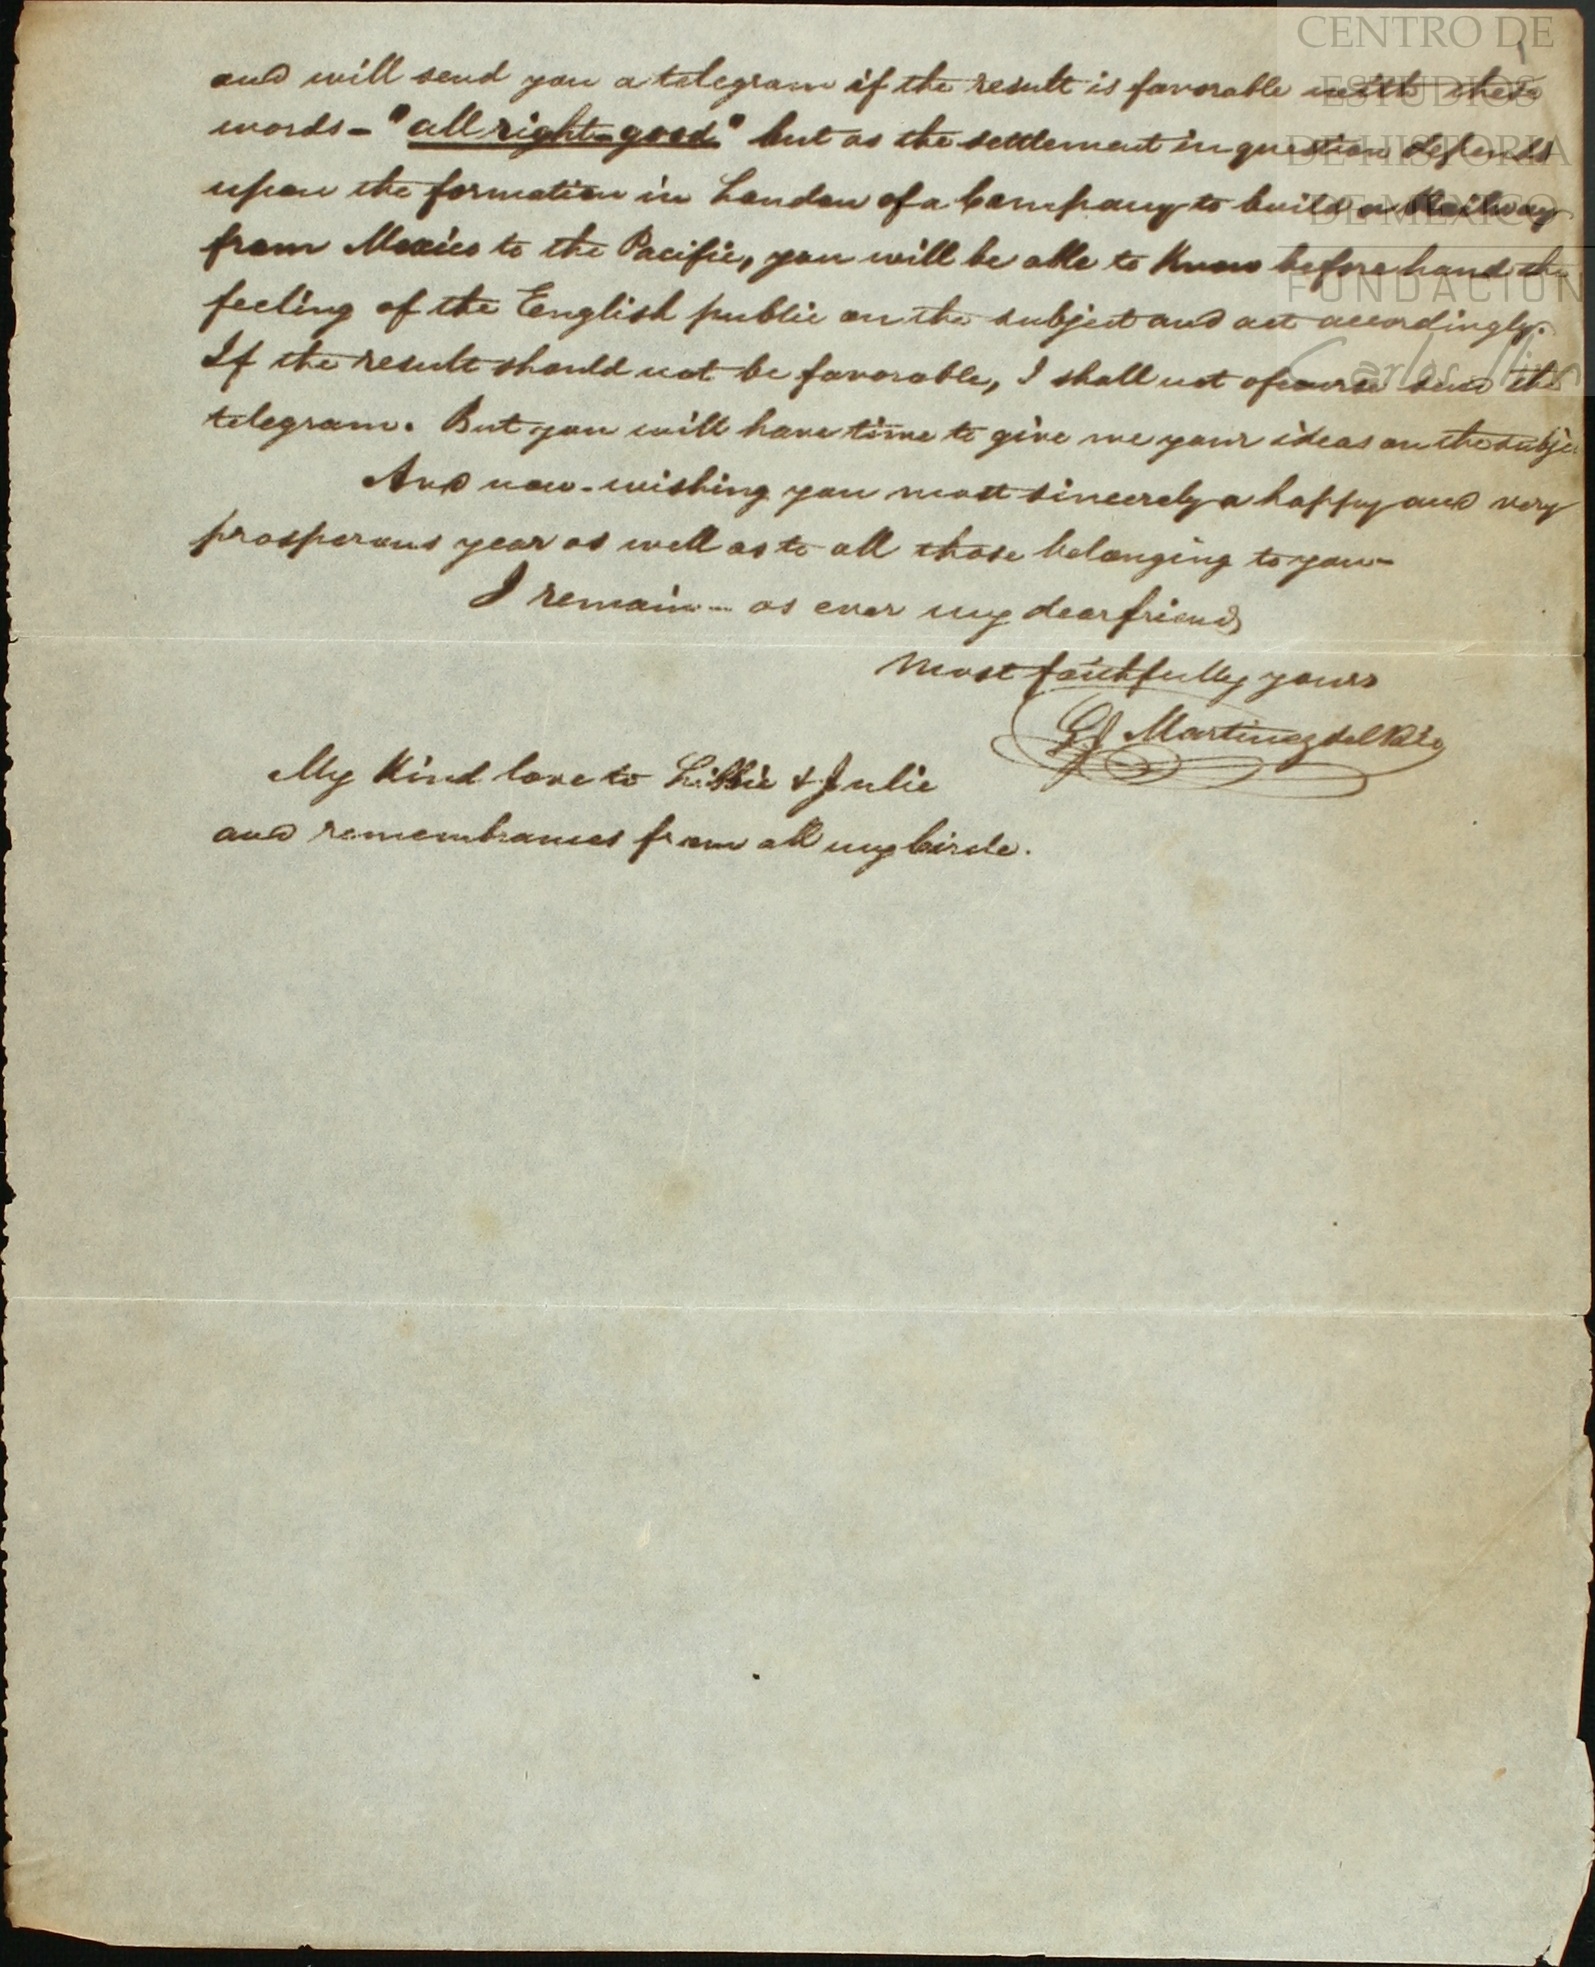 CENTRO DE
ESTUDIOS
DE HISTORIA
DE MÉXICO
FUNDACIÓN
Carlos Slim
and will send you a telegram if the result is favorable with these
words - "all right - good" but as the settlement in question depends
upon the formation in London of a Company to build a Railway
from Mexico to the Pacific, you will be able to Know before hand the
feeling of the English public on the subject and act accordingly.
If the result should not be favorable, I shall not ofcourse send the
telegram. But you will have time to give me your ideas on the subje
And now - wishing you most sincerely a happy and very
prosperous year as well as to all those belonging to you -
I remain - as ever my dear friend
Most faithfully yours
Martinez del Rio
My Kind love to & Julie
and remembrances from all my Circle.